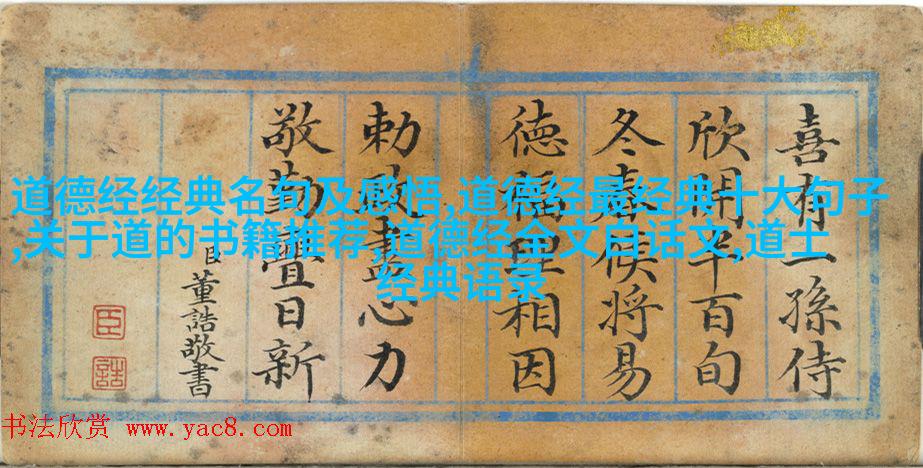 喜有一孫侍
欣開半百旬
冬春候將易
德福理相因
勅盡心力
敬勤日新
臣董誥敬書
臣
誥
道德经经典名句及感悟,道德经最经典十大句子
,关于道的书籍推荐,道德经全文白话文,道士
经典语录
书法欣赏 www.yac8.com